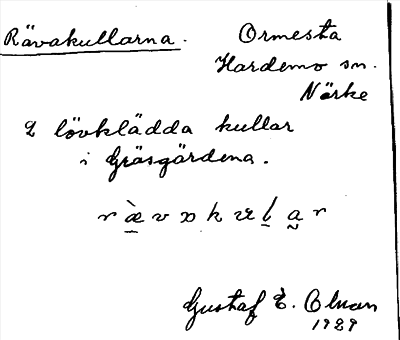 Rävakullarna.
Ormesta
Hardemo sn.
Närke
2 lövklädda kullar
i Gräsgärdena.
Gustaf E.
1929